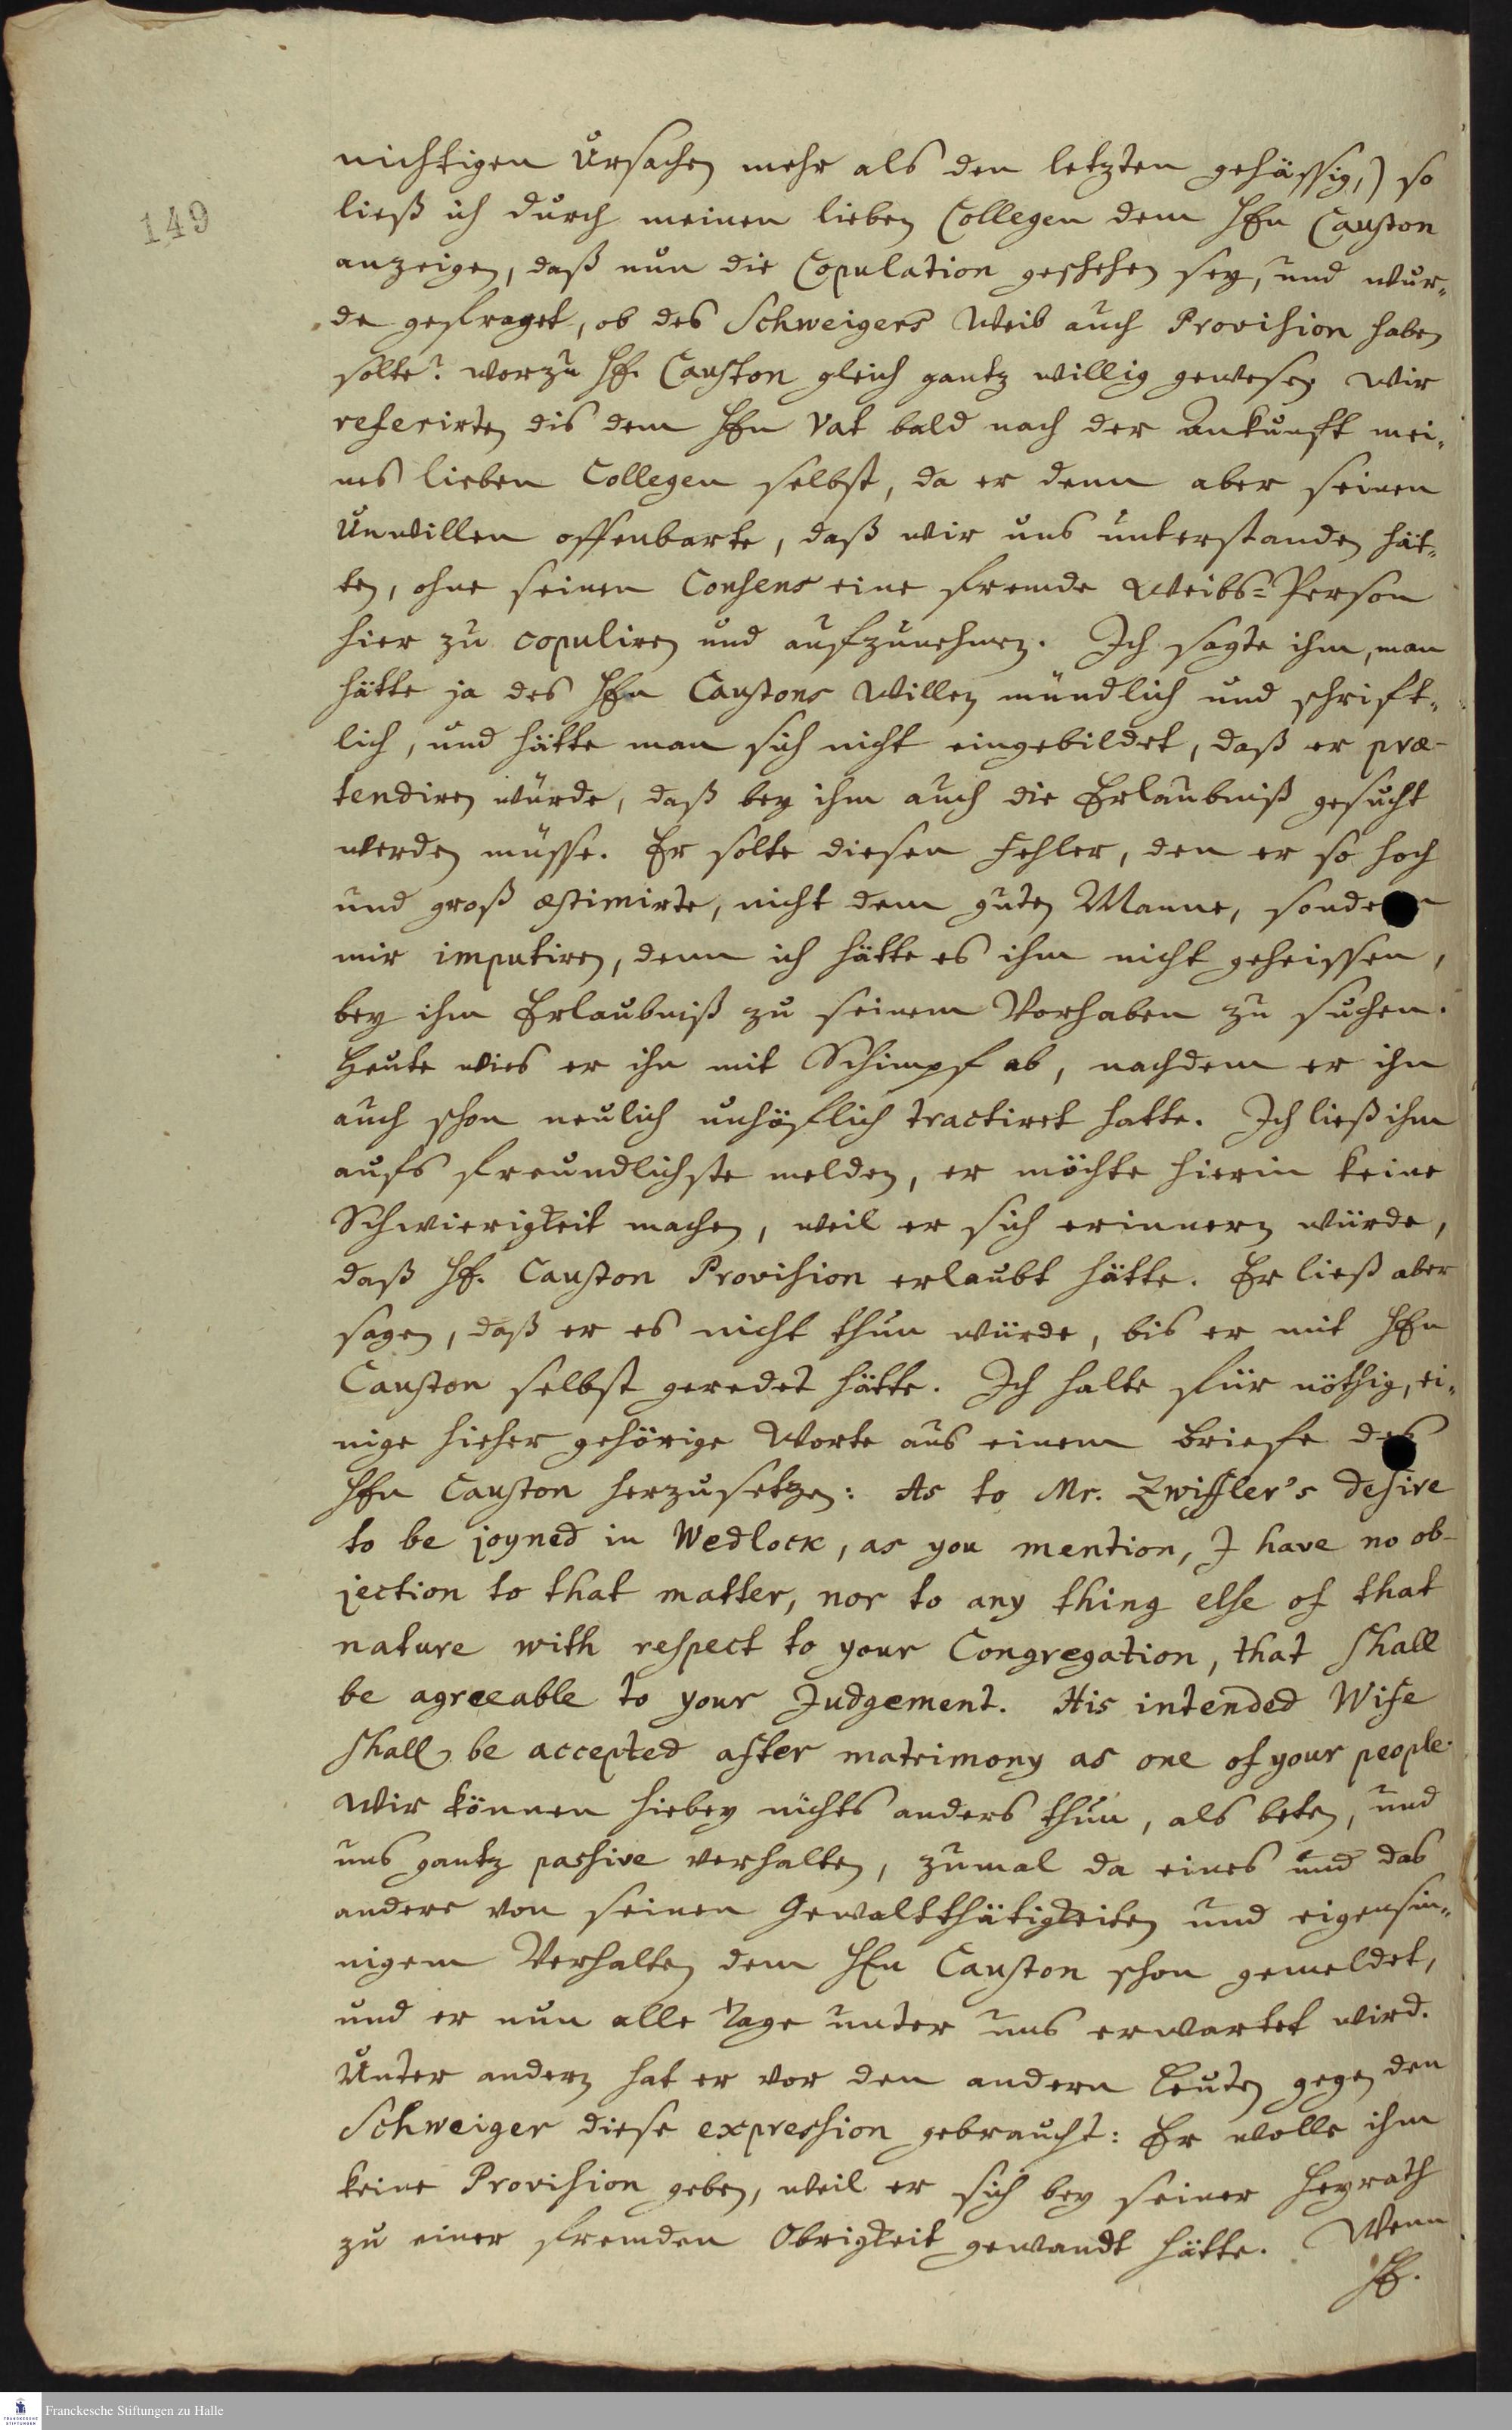 149
nichtigen Ursachen mehr als den letzten gehässig,) so
ließ ich durch meinen lieben Collegen dem HEn Causton
anzeigen, daß nun die Copulation geschehen sey, und wur-
de gefraget, ob des Schweigers Weib auch Provision haben
solte? worzu HE. Causton gleich gantz willig gewesen. Wir
referirten dis dem HEn Vat bald nach der Ankunft mei-
nes lieben Collegen selbst, da er denn aber seinen
Unwillen offenbarte, daß wir uns unterstanden hät-
ten, ohne seinen Consens eine fremde Weibs-Person
hier zu copuliren und aufzunehmen. Ich sagte ihm, man
hätte ja des HEn Caustons Willen mündlich und schrift-
lich, und hätte man sich nicht eingebildet, daß er præ-
tendiren würde, daß bey ihm auch die Erlaubniß gesucht
werden müsse. Er solte diesen Fehler, den er so hoch
und groß æstimirte, nicht dem guten Manne, sondern
mir imputiren, denn ich hätte es ihm nicht geheissen,
bey ihm Erlaubniß zu seinem Vorhaben zu suchen.
Heute wies er ihn mit Schimpf ab, nachdem er ihn
auch schon neulich unhöflich tractiret hatte. Ich ließ ihm
aufs freundlichste melden, er möchte hierin keine
Schwierigkeit machen, weil er sich erinnern würde,
daß HE. Causton Provision erlaubt hätte. Er ließ aber
sagen, daß er es nicht thun würde, bis er mit HEn
Causton selbst geredet hätte. Ich halte für nöthig, ei-
nige hieher gehörige Worte aus einem Briefe des
HEn Causton herzusetzen: As to Mr. Zwiffler's desire
to be joyned in Wedlock, as you mention, I have no ob-
jection to that matter, nor to any thing else of that
nature with respect to your Congregation, that shall
be agreeable to your Judgement. His intended Wife
shall be accepted after matrimony as one of your people.
Wir können hiebey nichts anders thun, als beten, und
uns gantz passive verhalten, zumal da eines und das
andere von seinen Gewaltthätigkeiten und eigensin-
nigem Verhalten dem HEn Causton schon gemeldet,
und er nun alle Tage unter uns erwartet wird.
Unter andern hat er vor den andern Leuten gegen den
Schweiger diese expression gebraucht: Er wolle ihm
keine Provision geben, weil er sich bey seiner Heyrath
zu einer fremden Obrigkeit gewandt hätte. Wenn
HE.
Franckesche Stiftungen zu Halle